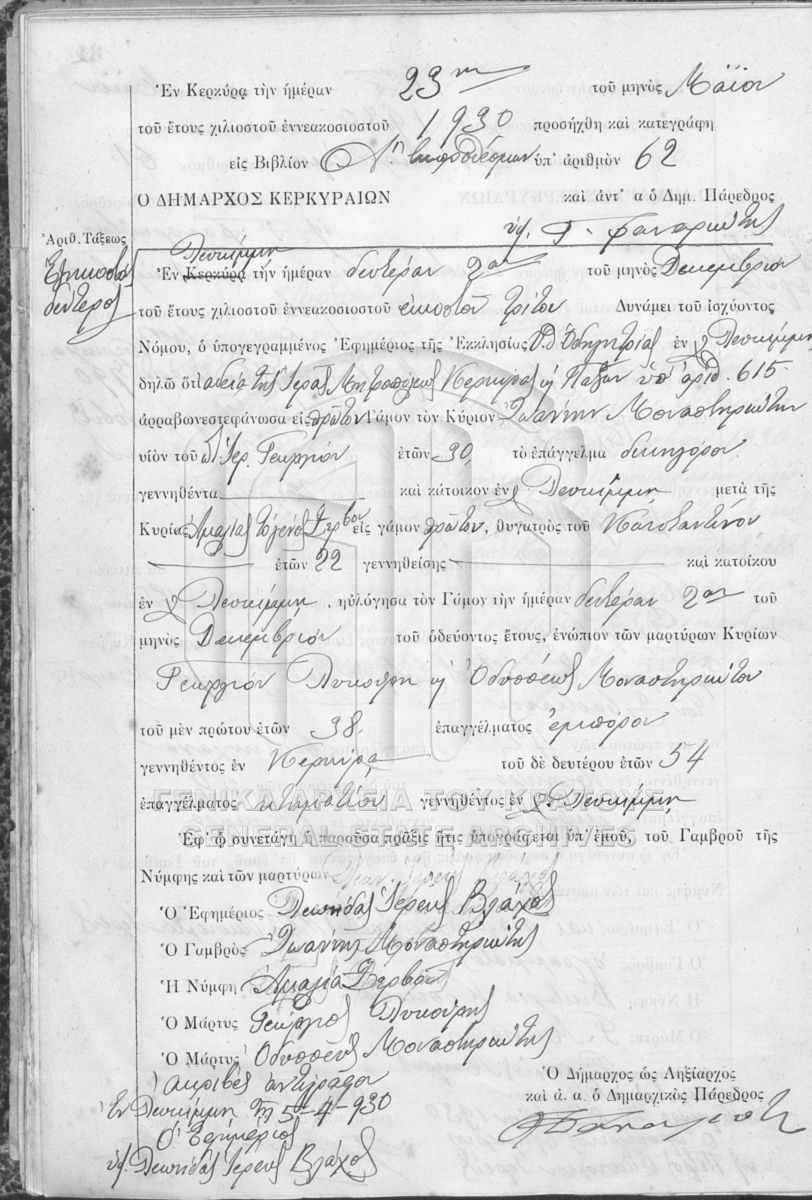 Ἐν Κερκύρᾳ τὴν ἡμέραν 23ην τοῦ μηνὸς Μαΐου
τοῦ ἔτους χιλιοστοῦ ἐννεακοσιοστοῦ 1930 προσήχθη καὶ κατεγράφη
εἰς Βιβλίον ὑπ' ἀριθμὸν 62
Ο ΔΗΜΑΡΧΟΣ ΚΕΡΚΥΡΑΙΩΝ
καὶ ἀντ' α ὁ Δημ. Πάρεδρος
Ἀριθ. Τάξεως
δεύτερος
Λευκίμμῃ
Ἐν Κερκύρᾳ τὴν ἡμέραν δευτέραν 2αν τοῦ μηνὸς Δεκεμβρίου
τοῦ ἔτους χιλιοστοῦ ἐννεακοσιοστοῦ εἰκοστοῦ τρίτου Δυνάμει τοῦ ἰσχύοντος
Νόμου, ὁ ὑπογεγραμμένος Ἐφημέριος τῆς Ἐκκλησίας Ὁδηγητρίας ἐν Λευκίμμῃ
δηλῶ ὅτι ἀδείᾳ τῆς Ἱερᾶς Μητροπόλεως Κερκύρας ἡ Παξῶν ὑπ' ἀριθ. 615
ἀρραβωνεστεφάνωσα εἰς πρῶτον Γάμον τὸν Κύριον Ἰωάννην Μοναστηριώτην
υἱὸν τοῦ Γεωργίου ἐτῶν 30, τὸ ἐπάγγελμα δικηγόρον
γεννηθέντα καὶ κάτοικον ἐν Λευκίμμῃ μετὰ τῆς
Κυρίας Ἀμαλίας τὸ γένος Ζερβοῦ εἰς γάμον πρῶτον, θυγατρὸς τοῦ Κωνσταντίνου
ἐτῶν 22 γεννηθείσης καὶ κατοίκου
ἐν Λευκίμμῃ, ηὐλόγησα τὸν Γάμον τὴν ἡμέραν δευτέραν 2αν τοῦ
μηνὸς Δεκεμβρίου τοῦ ὁδεύοντος ἔτους, ἐνώπιον τῶν μαρτύρων Κυρίων
Γεωργίου Λυκούρη ἡ Ὀδυσσέως Μοναστηριώτου
τοῦ μὲν πρώτου ἐτῶν 38. ἐπαγγέλματος ἐμπόρου
γεννηθέντος ἐν Κερκύρᾳ τοῦ δὲ δευτέρου ἐτῶν 54
ἐπαγγέλματος κτηματίου γεννηθέντος ἐν Λευκίμμῃ
ΓΕΝΙΚΑ ΑΡΧΕΙΑ ΤΟΥ ΚΡΑΤΟΥΣ
GENERAL STATE ARCHIVES
Ἐφ' ᾧ συνετάγη ἡ παροῦσα πρᾶξις ἥτις ὑπογράφεται ὑπ' ἐμοῦ, τοῦ Γαμβροῦ τῆς
Νύμφης καὶ τῶν μαρτύρων
Ὁ Ἐφημέριος Λεωνίδας Ἱερεὺς Βλάχος
Ὁ Γαμβρὸς Ἰωάννης Μοναστηριώτης
Ἡ Νύμφη Ἀμαλία Ζερβοῦ
Ὁ Μάρτυς Γεώργιος Λυκούρης
Ὁ Μάρτυς Ὀδυσσεὺς Μοναστηριώτης
Ἀκριβὲς ἀντίγραφον
Ἐν Λευκίμμῃ τῇ 5-4-930
Ὁ Ἐφημέριος
ὑπ. Λεωνίδας Ἱερεὺς Βλάχος
Ὁ Δήμαρχος ὡς Ληξίαρχος
καὶ ἀ. α. ὁ Δημαρχικὸς Πάρεδρος